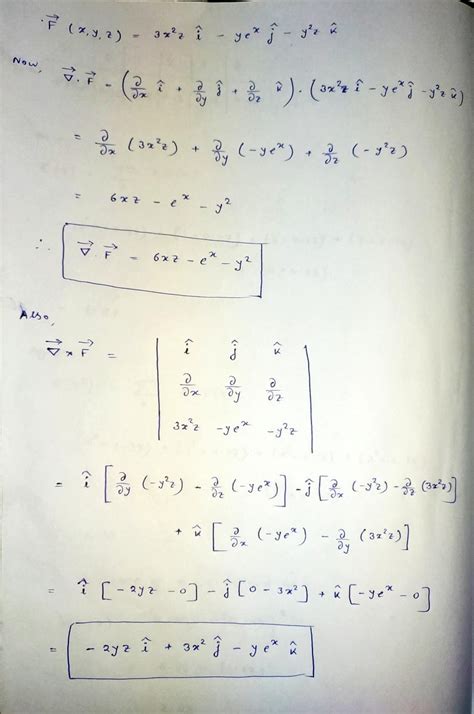 F⃗ (x,y,z) = 3x²z î - ye^x ĵ - y²z k̂
Now, ∇⃗·F⃗ = (∂/∂x î + ∂/∂y ĵ + ∂/∂z k̂) · (3x²z î - ye^x ĵ - y²z k̂)
= ∂/∂x (3x²z) + ∂/∂y (-ye^x) + ∂/∂z (-y²z)
= 6xz - e^x - y²
∴ ∇⃗·F⃗ = 6xz - e^x - y²
Also,
∇⃗×F⃗ = | î ĵ k̂ |
| ∂/∂x ∂/∂y ∂/∂z |
| 3x²z -ye^x -y²z |
= î [∂/∂y (-y²z) - ∂/∂z (-ye^x)] - ĵ [∂/∂x (-y²z) - ∂/∂z (3x²z)]
+ k̂ [∂/∂x (-ye^x) - ∂/∂y (3x²z)]
= î [-2yz - 0] - ĵ [0 - 3x²] + k̂ [-ye^x - 0]
= -2yz î + 3x² ĵ - ye^x k̂